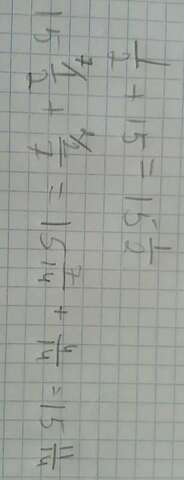 1/2 + 15 = 15 1/2
15 1/2 + 2/7 = 15 7/14 + 4/14 = 15 11/14